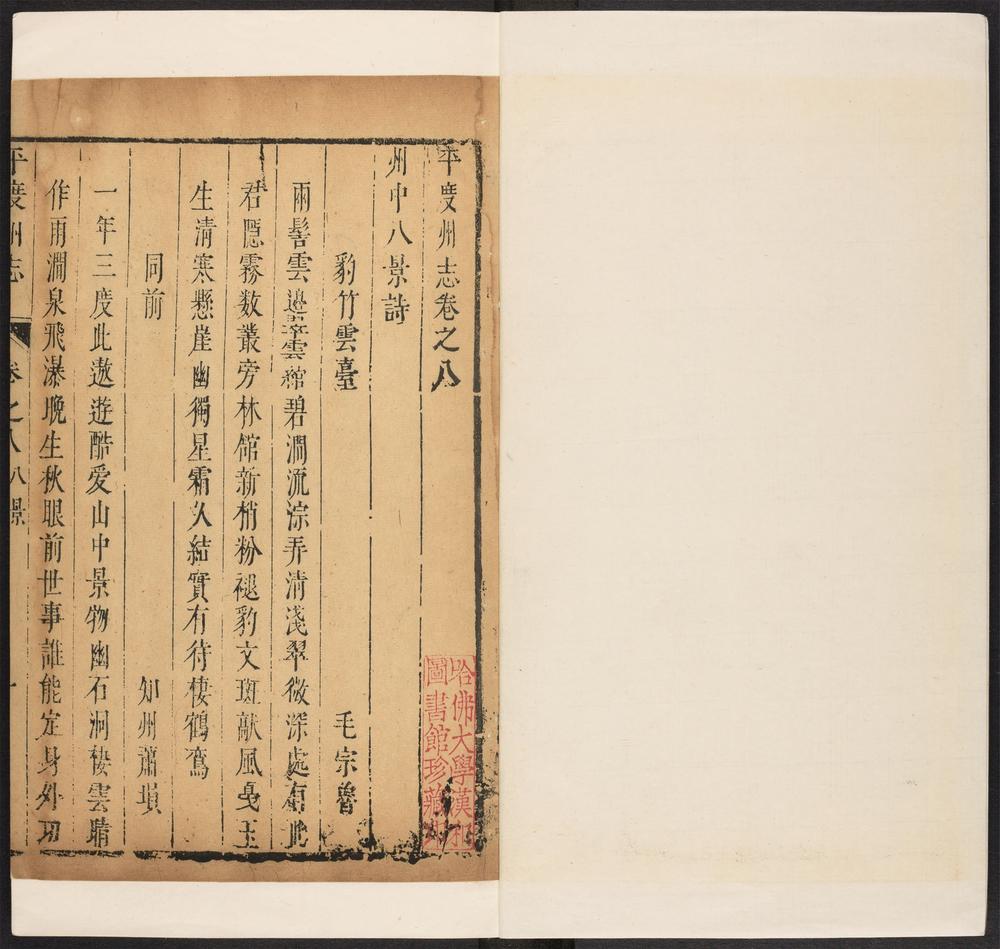 平度州志卷之八
州中八景詩
豹竹雲臺
毛宗魯
兩髻雲邊卒雲舘碧澗流淙弄清淺翠微深處有此
君隱霧数叢旁林舘新梢粉褪豹文斑敲風戛玉
生清寒懸崖幽獨星霜久結實有待棲鶴鸞
同前
知州蕭塤
一年三度此遨遊酷爱山中景物幽石洞棲雲晴
作雨澗泉飛瀑晚生秋眼前世事誰能定身外功
平度州志
卷之八
八景
一
哈佛大學漢和
圖書館珍藏印